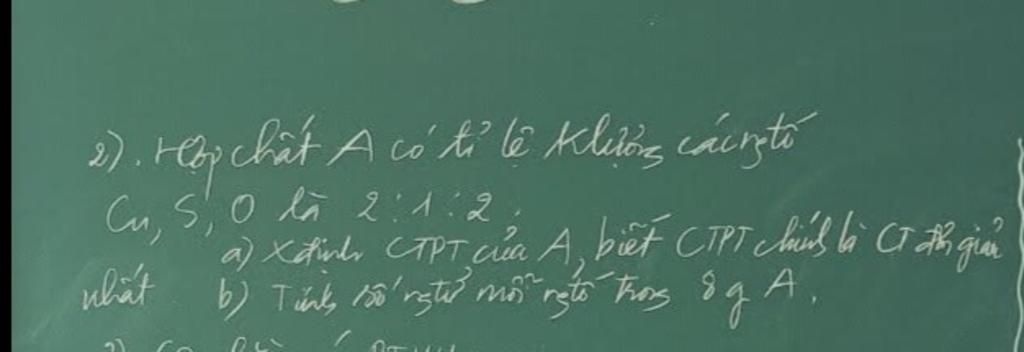 2). Hợp chất A có tỉ lệ klượng các ngtố
Cu, S, O là 2:1:2.
a) Xđịnh CTPT của A, biết CTPT chính là CT đơn giản
nhất b) Tính số ngtử mỗi ngtố trong 8g A.